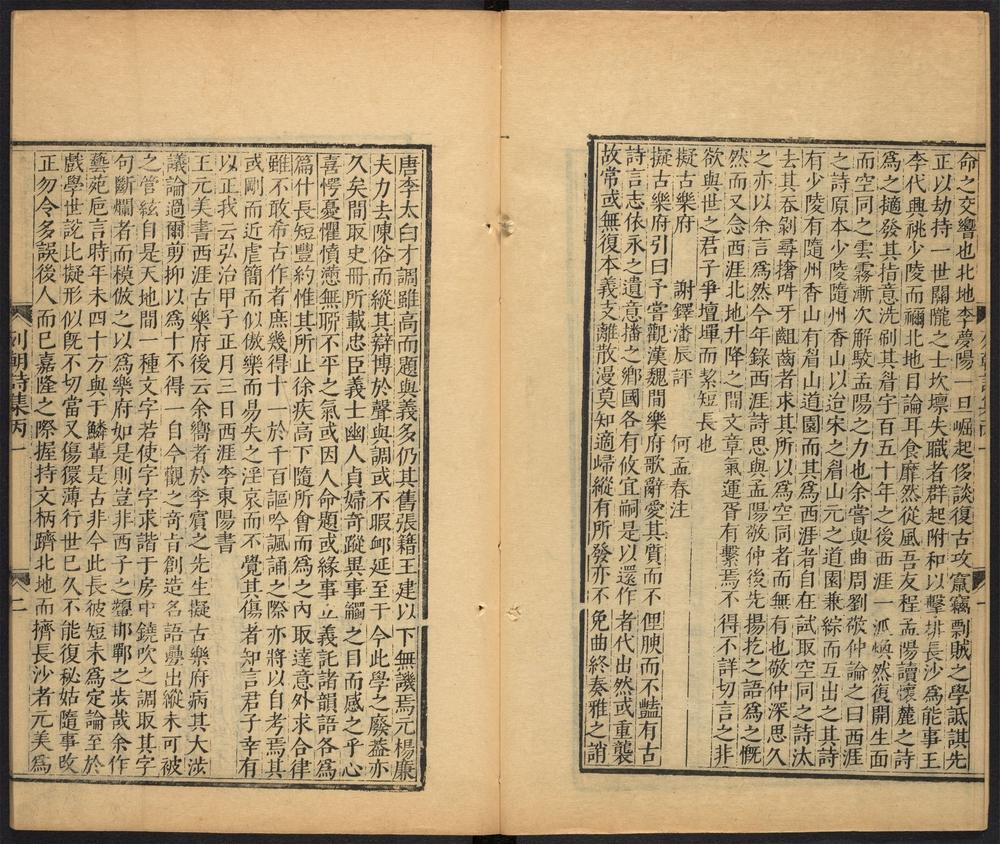 命之交響也北地李夢陽一旦崛起侈談復古攻竄竊剽賊之學詆諆先
正以劫持一世關隴之士坎壈失職者群起附和以擊排長沙為能事王
李代興祧少陵而禰北地目論耳食靡然從風吾友程孟陽讀懷麓之詩
為之擿發其指意洗刷其眉宇百五十年之後西涯一派煥然復開生面
而空同之雲霧漸次解駮孟陽之力也余嘗與曲周劉敬仲論之曰西涯
之詩原本少陵隨州香山以迨宋之眉山元之道園兼綜而互出之其詩
有少陵有隨州香山有眉山道園而其為西涯者自在試取空同之詩汰
去其吞剝尋撦吽牙齟齒者求其所以為空同者而無有也敬仲深思久
之亦以余言為然今年錄西涯詩思與孟陽敬仲後先揚扢之語為之慨
然而又念西涯北地升降之間文章氣運胥有繫焉不得不詳切言之非
欲與世之君子爭壇墠而絜短長也
擬古樂府 謝鐸潘辰評 何孟春注
擬古樂府引曰予嘗觀漢魏間樂府歌辭愛其質而不俚腴而不豔有古
詩言志依永之遺意播之鄉國各有攸宜嗣是以還作者代出然或重襲
故常或無復本義支離散漫莫知適歸縱有所發亦不免曲終奏雅之誚
唐李太白才調雖高而題與義多仍其舊張籍王建以下無譏焉元楊廉
夫力去陳俗而縱其辯博於聲與調或不暇卹延至于今此學之廢蓋亦
久矣間取史冊所載忠臣義士幽人貞婦奇蹤異事觸之目而感之乎心
喜愕憂懼憤懣無聊不平之氣或因人命題或緣事立義託諸韻語各為
篇什長短豐約惟其所止徐疾高下隨所會而為之內取達意外求合律
雖不敢希古作者庶幾得十一於千百謳吟諷誦之際亦將以自考焉其
或剛而近虐簡而似傲樂而易失之淫哀而不覺其傷者知言君子幸有
以正我云弘治甲子正月三日西涯李東陽書
王元美書西涯古樂府後云余嚮者於李賓之先生擬古樂府病其大涉
議論過爾剪抑以為十不得一自今觀之奇旨創造名語疊出縱未可被
之管絃自是天地間一種文字若使字字求諧于房中鐃吹之調取其字
句斷爛者而模倣之以為樂府如是則豈非西子之顰邯鄲之步哉余作
藝苑巵言時年未四十方與于鱗輩是古非今此長彼短未為定論至於
戲學世說比擬形似既不切當又傷儇薄行世已久不能復秘姑隨事改
正勿令多誤後人而已嘉隆之際握持文柄躋北地而擠長沙者元美為
列朝詩集丙一
二